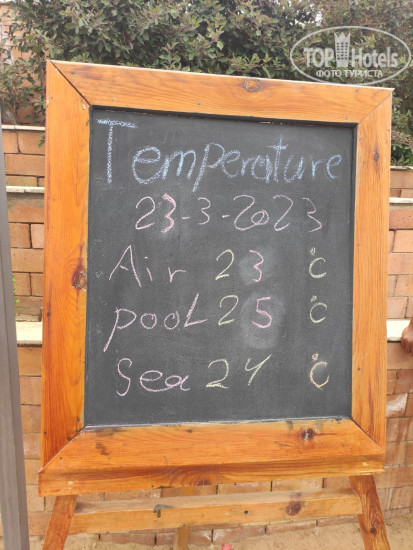 TOPHotels
ФОТО ТУРИСТА
Temperature
23-3-2023
Air 23 °C
pooL 25 °C
Sea 24 °C